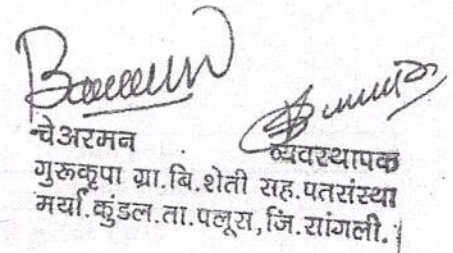 चेअरमन व्यवस्थापक
गुरूकृपा ग्रा.बि.शेती सह.पतसंस्था
मर्या.कुंडल.ता.पलूस,जि.सांगली.